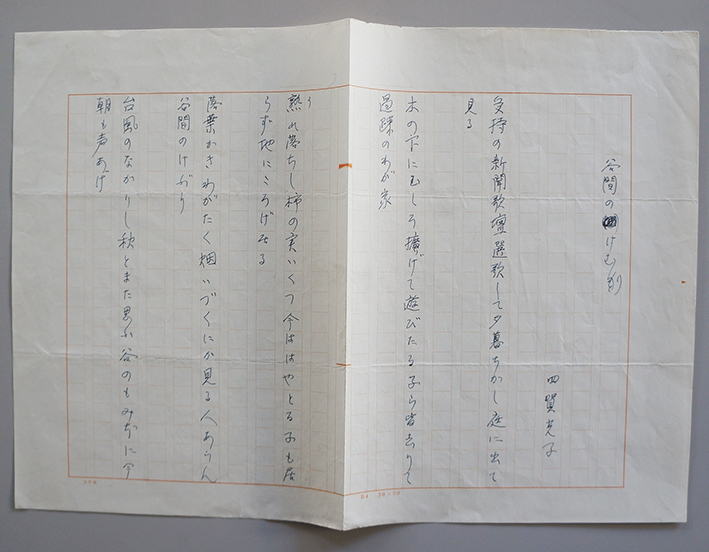 谷間のけむり
四賀光子
受持の新聞歌壇選歌して夕暮ちかし庭に出て
見る
木の下にむしろ擴げて遊びたる子ら皆去りて
過疎のわが家
熟れ落ちし柿の実いくつ今ははやとる子も居
らず地にころげゐる
落葉かきわがたく烟いづくにか見る人あらん
谷間のけぶり
台風のなかりし秋とまた思ふ谷のもみぢに今
朝も声あげ